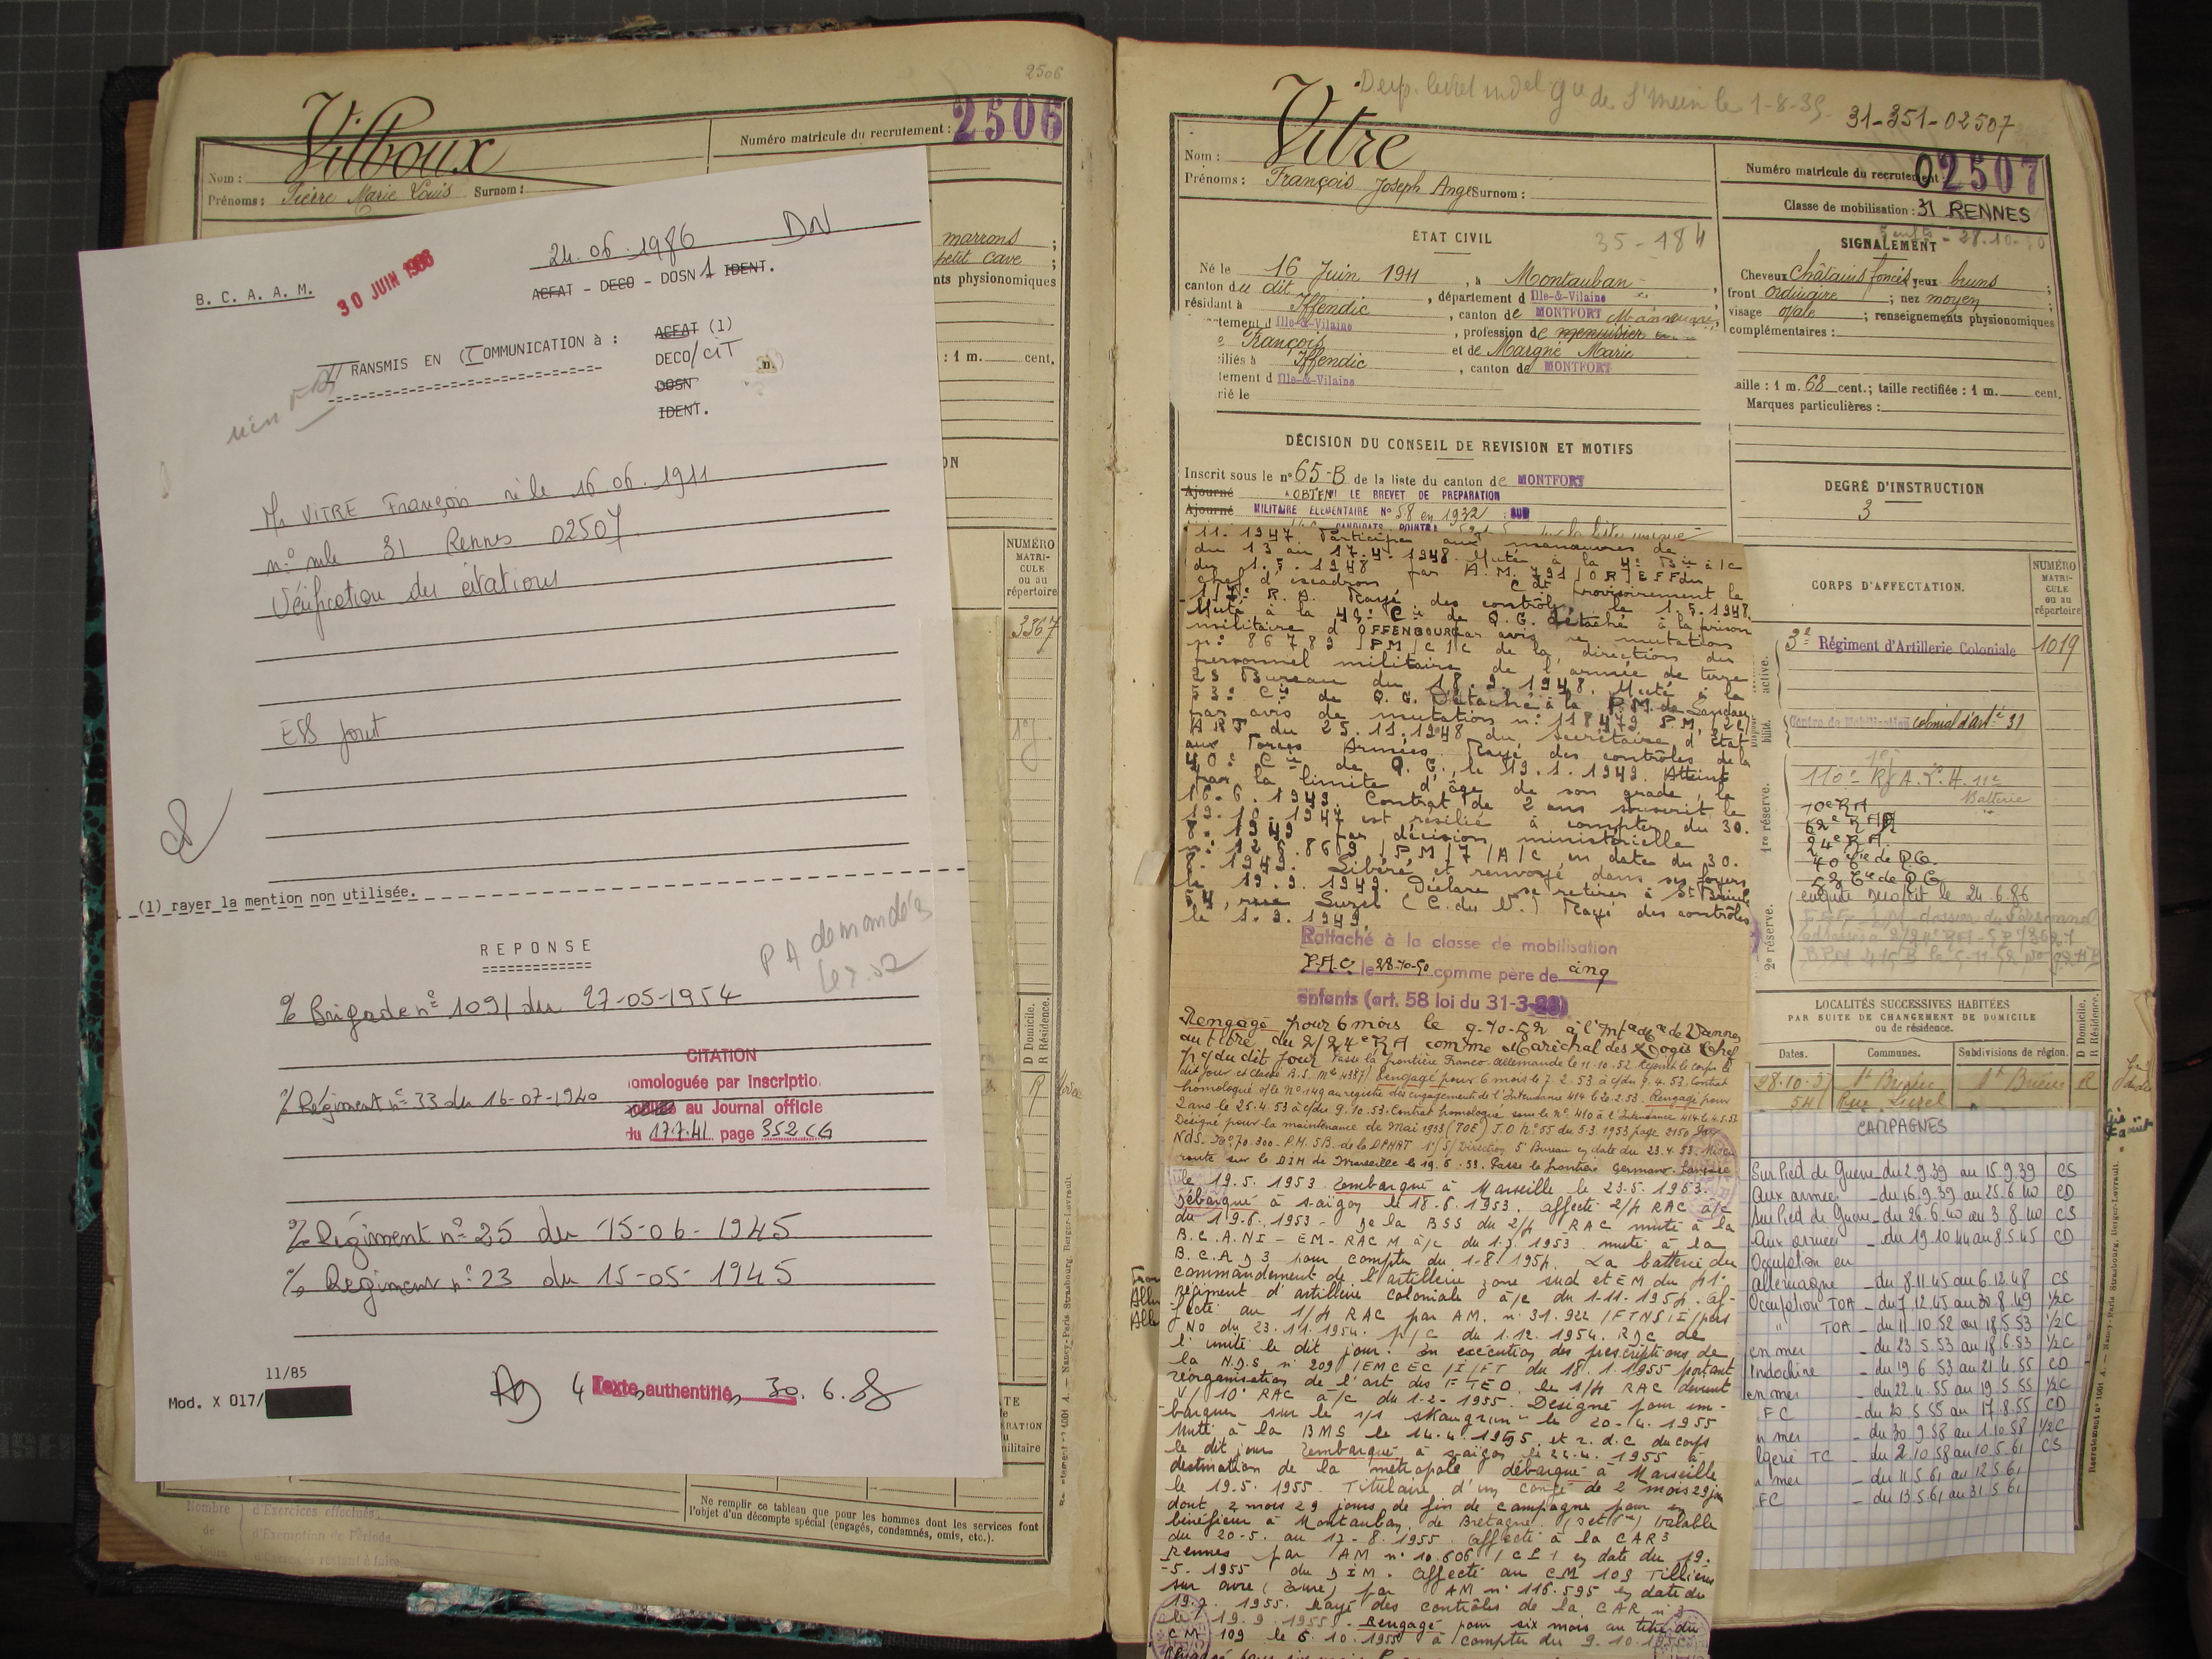 2506
Vilboux
Numéro matricule du recrutement : 2506
Nom :
Prénoms : Pierre Marie Louis Surnom :
marrons ;
petit cave ;
nts physionomiques
: 1 m. cent.
ON
NUMÉRO
MATRI-
CULE
ou au
répertoire
3367
D Domicile.
R Résidence.
R
24.06.1986 DN
B. C. A. A. M.
30 JUIN 1986
ACFAT - DECO - DOSN 1 IDENT.
TRANSMIS EN COMMUNICATION à :
ACFAT (1)
DECO/CIT
DOSN
IDENT.
Mr VITRE François né le 16.06.1911
n° mle 31 Rennes 02507
Vérification des citations
ESS
(1) rayer la mention non utilisée.
REPONSE
PA demandés
% Brigade n° 109/ du 27-05-1954
CITATION
omologuée par inscriptio
au Journal officie
du 17.7.41 page 352 CG
% Régiment n° 33 du 16-07-1940
% Régiment n° 25 du 15-06-1945
% Régiment n° 23 du 15-05-1945
11/85
Mod. X 017/
4 Textes authentifiés 30.6.
Nombre
de
Jours
d'Exercices effectués.
d'Exemption de Période
d'Exercices restant à faire
Ne remplir ce tableau que pour les hommes dont les services font
l'objet d'un décompte spécial (engagés, condamnés, omis, etc.).
de St Meen le 1-8-35
31-351-02507
Vitre
Nom :
Prénoms : François Joseph Ange Surnom :
Numéro matricule du recrutement : 02507
Classe de mobilisation : 31 RENNES
ÉTAT CIVIL
35-184
Né le 16 Juin 1911, à Montauban
canton du dit, département d Ille-&-Vilaine
résidant à Iffendic, canton de MONTFORT
tement d Ille-&-Vilaine, profession de menuisier
François et de Margné Marie
iliés à Iffendic, canton de MONTFORT
tement d Ille-&-Vilaine
rié le
SIGNALEMENT
5 enfts - 28.10.50
Cheveux châtains foncés yeux bruns ;
front ordinaire ; nez moyen ;
visage ovale ; renseignements physionomiques
complémentaires :
aille : 1 m. 68 cent.; taille rectifiée : 1 m. cent.
Marques particulières :
DÉCISION DU CONSEIL DE REVISION ET MOTIFS
Inscrit sous le n° 65-B de la liste du canton de MONTFORT
Ajourné
A OBTENU LE BREVET DE PREPARATION
Ajourné
MILITAIRE ELEMENTAIRE N° 58 en 1932 SUR
DEGRÉ D'INSTRUCTION
3
11.1947. Participe aux manœuvres de
du 13 au 17.4.1948. Muté à la 4e Bie à/c
du 1.5.1948 par A.M. 791/OR/EFF du
chef d'escadron Cdt provisoirement le
R.A. Rayé des contrôles le 1.5.1948.
Muté à la 40e Cie de Q.G. détaché à la prison
militaire d'OFFENBOURG par avis de mutations
n° 86789/PM/C/C de la direction du
personnel militaire de l'armée de terre
2e Bureau du 18.9.1948. Muté à la
53e Cie de Q.G. Détaché à la P.M. de Landau
par avis de mutation n° 118479 P.M/2e/
ART du 25.11.1948 du secrétaire d'Etat
aux Forces Armées. Rayé des contrôles de la
40e Cie de Q.G., le 19.1.1949. Atteint
par la limite d'âge de son grade, le
16.6.1949. Contrat de 2 ans souscrit le
19.10.1947 est résilié à compter du 30.
8.1949 par décision ministérielle
n° 128.869/PM/7/A/C en date du 30.
1949. Libéré et renvoyé dans ses foyers
le 19.9.1949. Déclare se retirer à St Brieuc
54, rue Luzel (C. du N.) Rayé des contrôles
le 1.9.1949.
Rattaché à la classe de mobilisation
P.A.C. le 28-10-50 comme père de cinq
enfants (art. 58 loi du 31-3-28)
Rengagé pour 6 mois le 9-10-52 à l'Intce de Vannes
au titre du 2/24e RA comme Maréchal des Logis Chef
p/c du dit jour Passe la frontière Franco-Allemande le 11.10.52 Rejoint le corps le
dit jour et classé A.S. Rengagé pour 6 mois le 7.2.53 à c/du 9.4.53. Contrat
homologué s/le N° 149 au registre des engagements de l'Intendance 414 le 20.2.53. Rengagé pour
2 ans le 25.4.53 à c/du 9.10.53. Contrat homologué sous le N° 410 à l'Intendance 414 le 4.5.53
Désigné pour la maintenance de Mai 1953 (TOE) J.O N° 55 du 5.3.1953 page 2150
NdS. N° 70.300-P.M. 5B. de la DPMAT 1°/S/Direction 5e Bureau en date du 23.4.53. Mis en
route sur le DIM de Marseille le 19.5.53. Passe la frontière Germano-Française
le 19.5.1953 Embarqué à Marseille le 23.5.1953.
Débarqué à Saïgon le 18.6.1953. affecté 2/4 RAC à/c
du 19.6.1953 - De la BSS du 2/4 RAC muté à la
B.C.A.NI-EM-RACM à/c du 1.7.1953 muté à la
B.C.A.D3 pour compter du 1-8-1954. La batterie du
commandement de l'artillerie zone sud et EM du 41e
régiment d'artillerie coloniale à/c du 1-11-1954. Af-
fecté au 1/4 RAC par AM. n° 31.922/FTNS/I/pers
NO du 23.11.1954. p/c du 1.12.1954. RDC de
l'unité le dit jour. En exécution des prescriptions de
la N.D.S n° 209/EMCEC/I/FT du 18.1.1955 portant
réorganisation de l'art des FTEO. le 1/4 RAC devient
V/10e RAC à/c du 1-2-1955. Désigné pour em-
barquer sur le s/s skaugrun le 20-4.1955
Muté à la BMS le 14.4.1955 et r.d.c du corps
le dit jour Embarqué à Saïgon le 22.4.1955 à
destination de la métropole débarqué à Marseille
le 19.5.1955. Titulaire d'un congé de 2 mois 29 jrs
dont 2 mois 29 jours de fin de campagne pour en
bénéficier à Montauban de Bretagne (I et V) valable
du 20-5. au 17-8.1955. affecté à la CAR3
Rennes par AM n° 10.606/CPI en date du 19.
-5.1955 du DIM. affecté au CM 109 Tillières
sur avre (Eure) par AM n° 116.595 en date du
19.7.1955. Rayé des contrôles de la CAR n° 3
le 19.9.1955. Rengagé pour six mois au titre du
CM 109 le 6.10.1955 à compter du 9.10.1955
CORPS D'AFFECTATION.
NUMÉRO
MATRI-
CULE
ou au
répertoire
active.
3e Régiment d'Artillerie Coloniale 1019
Centre de Mobilisation colonial d'artie 31
1re réserve.
110e R.A.L.H. 11e
Batterie
10e RA
62e RAA
24e RA
40 Cie de Q.G.
53 Cie de Q.G.
2e réserve.
enquête Deco/cit le 24.6.86
LOCALITÉS SUCCESSIVES HABITÉES
PAR SUITE DE CHANGEMENT DE DOMICILE
ou de résidence.
D Domicile.
R Résidence.
Dates. Communes. Subdivisions de région.
28.10.37 St Brieuc St Brieuc R
54 Rue Luzel
CAMPAGNES
Sur Pied de Guerre du 2.9.39 au 15.9.39 CS
Aux armées - du 16.9.39 au 25.6.40 CD
Sur Pied de Guerre - du 26.6.40 au 3.8.40 CS
Aux armées - du 19.10.44 au 8.5.45 CD
Occupation en
Allemagne - du 8.11.45 au 6.12.48 CS
Occupation TOA - du 7.12.45 au 30.8.49 1/2C
" TOA - du 11.10.52 au 18.5.53 1/2C
en mer - du 23.5.53 au 18.6.53 1/2C
Indochine - du 19.6.53 au 21.4.55 CD
en mer - du 22.4.55 au 19.5.55 1/2C
FC - du 20.5.55 au 17.8.55 CD
n mer - du 30.9.58 au 1.10.58 1/2C
lgérie TC - du 2.10.58 au 10.5.61 CS
n mer - du 11.5.61 au 12.5.61
FC - du 13.5.61 au 31.5.61
Recrutement n° 1001 A. — Nancy-Paris Strasbourg, Berger-Levrault.